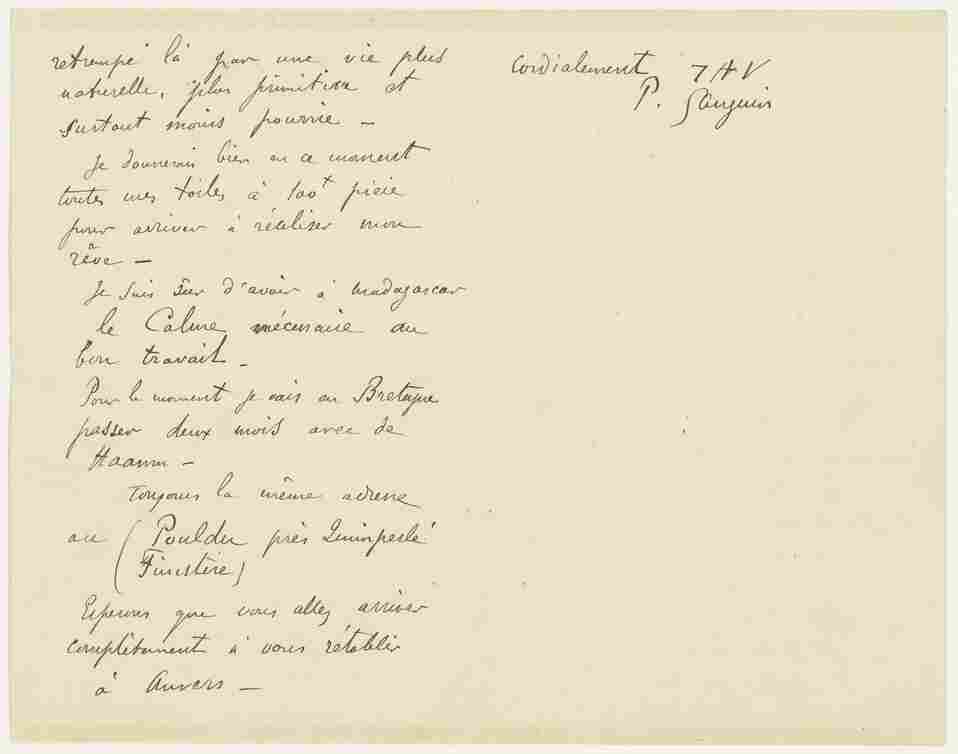 retrempé là par une vie plus
naturelle, plus primitive et
surtout moins pourrie —
Je donnerais bien en ce moment
toutes mes toiles à 100f pièce
pour arriver à réaliser mon
rêve —
Je suis sûr d'avoir à Madagascar
le Calme nécessaire au
bon travail —
Pour le moment je vais en Bretagne
passer deux mois avec de
Haann —
Toujours la même adresse
au (Pouldu près Quimperlé
Finistère)
Esperons que vous allez arriver
complêtement à vous rétablir
à Auvers —
Cordialement T A V
P. Gauguin